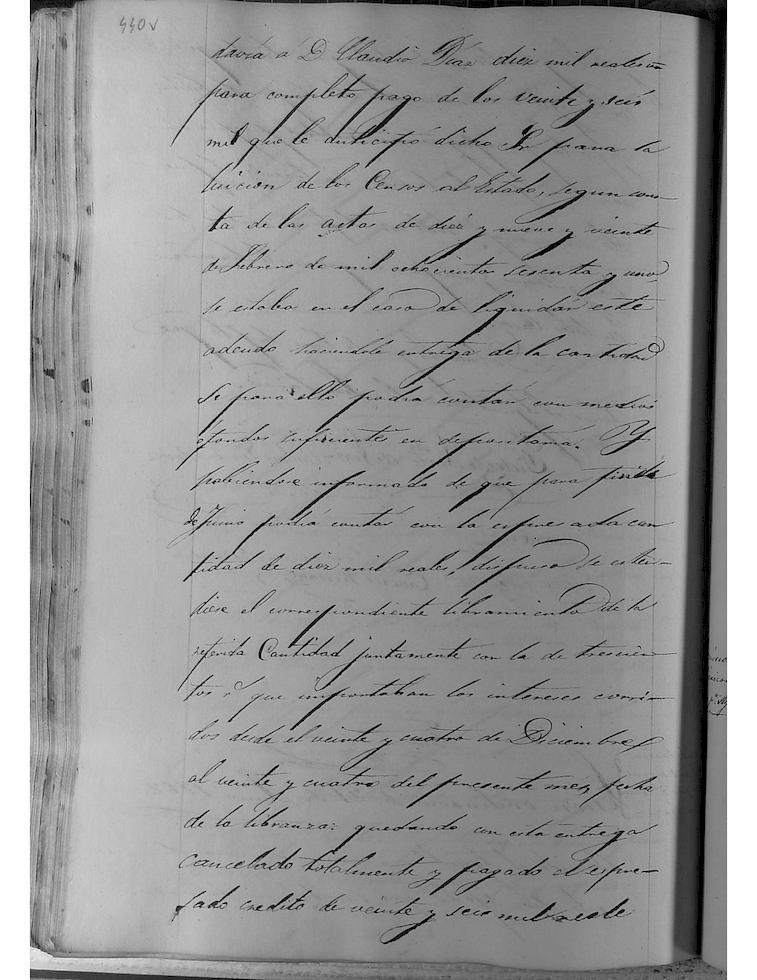 440v
davia á D Claudio Diaz diez mil reales vn
para completo pago de los veinte y seis
mil que le anticipó dicho Sr para la
de los Censos al Estado, segun cons-
ta de las actas de diez y nueve y veinte
de Febrero de mil ochocientos sesenta y uno,
se estaba en el caso de liquidar este
adeudo haciendole entrega de la cantidad
se para ello podrá contar con medios
ó fondos suficientes en depositaria. Y
habiendose informado de que para fin de
de Junio podrá contar con la espresada can
tidad de diez mil reales, dispuso se esten-
diese el correspondiente libramiento de la
referida Cantidad juntamente con la de trescien-
tos r que importaban los intereses corri-
dos desde el veinte y cuatro de Diciembre
al veinte y cuatro del presente mes, fecha
de la libranza: quedando con esta entrega
cancelado totalmente y pagado el espre-
sado credito de veinte y seis mil reales